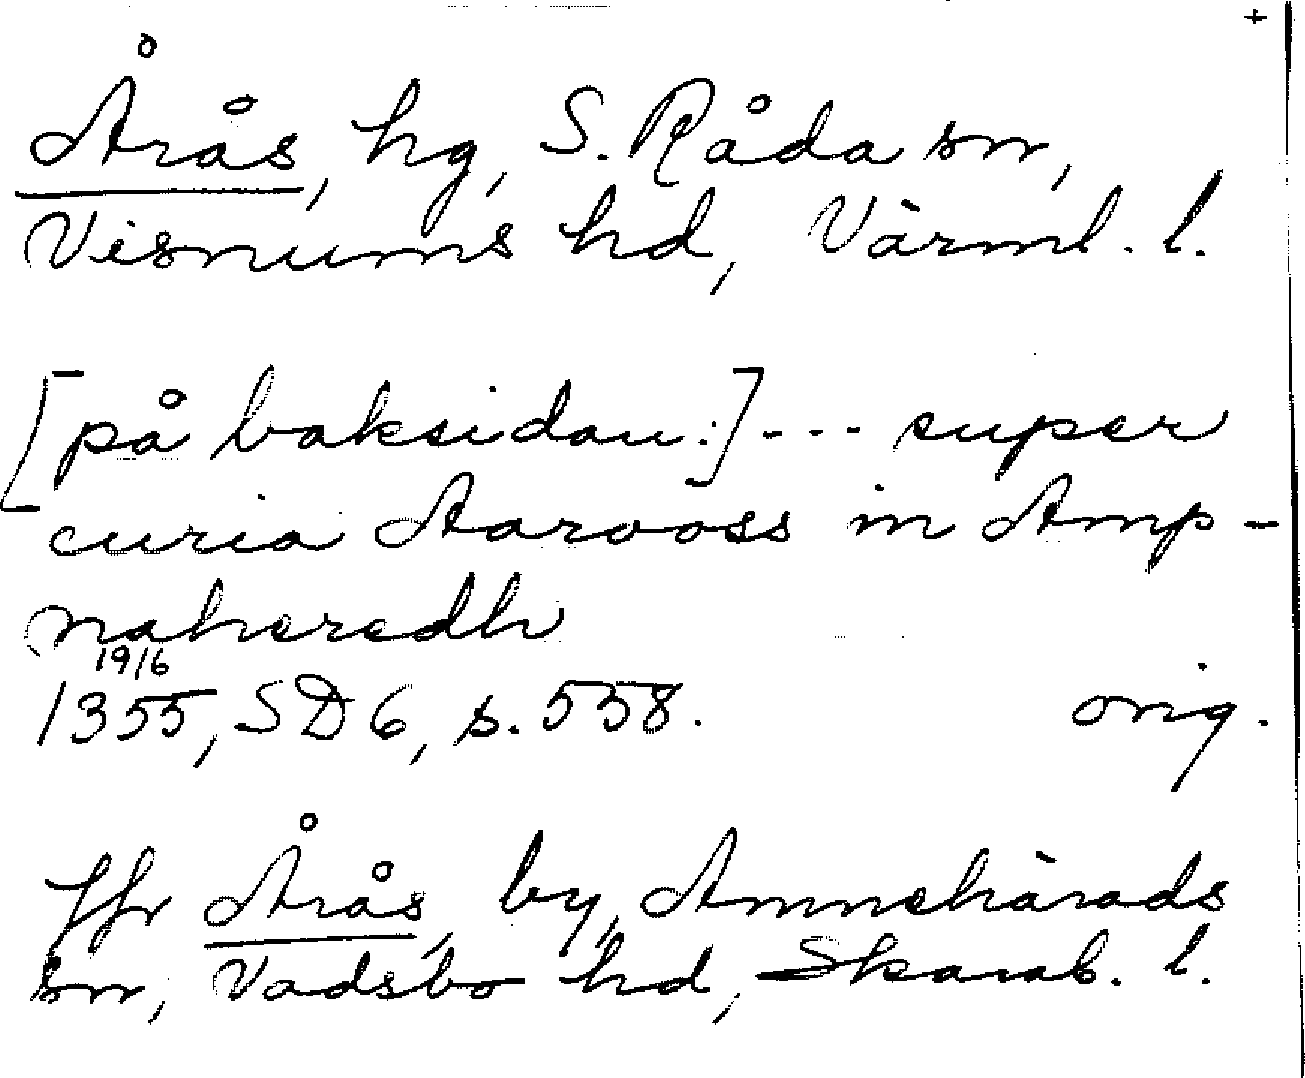 +
Årås, hg, S. Råda sn,
Visnums hd, Värml. l.
[på baksidan:] --- super
curia Aarooss in Amp-
naheredh
19/6
1355, SD 6, s. 558. orig.
Jfr Årås, by, Amnehärads
sn, Vadsbo hd, Skarab. l.